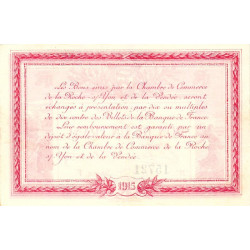 Les Bons émis par la Chambre de Commerce
de la Roche s/Yon et de la Vendée seront
échangés à présentation, par dix ou multiples
de dix contre des Billets de la Banque de France.
Leur remboursement est garanti par un
dépôt d'égale valeur à la Banque de France au
nom de la Chambre de Commerce de la Roche
s/Yon et de la Vendée
1915